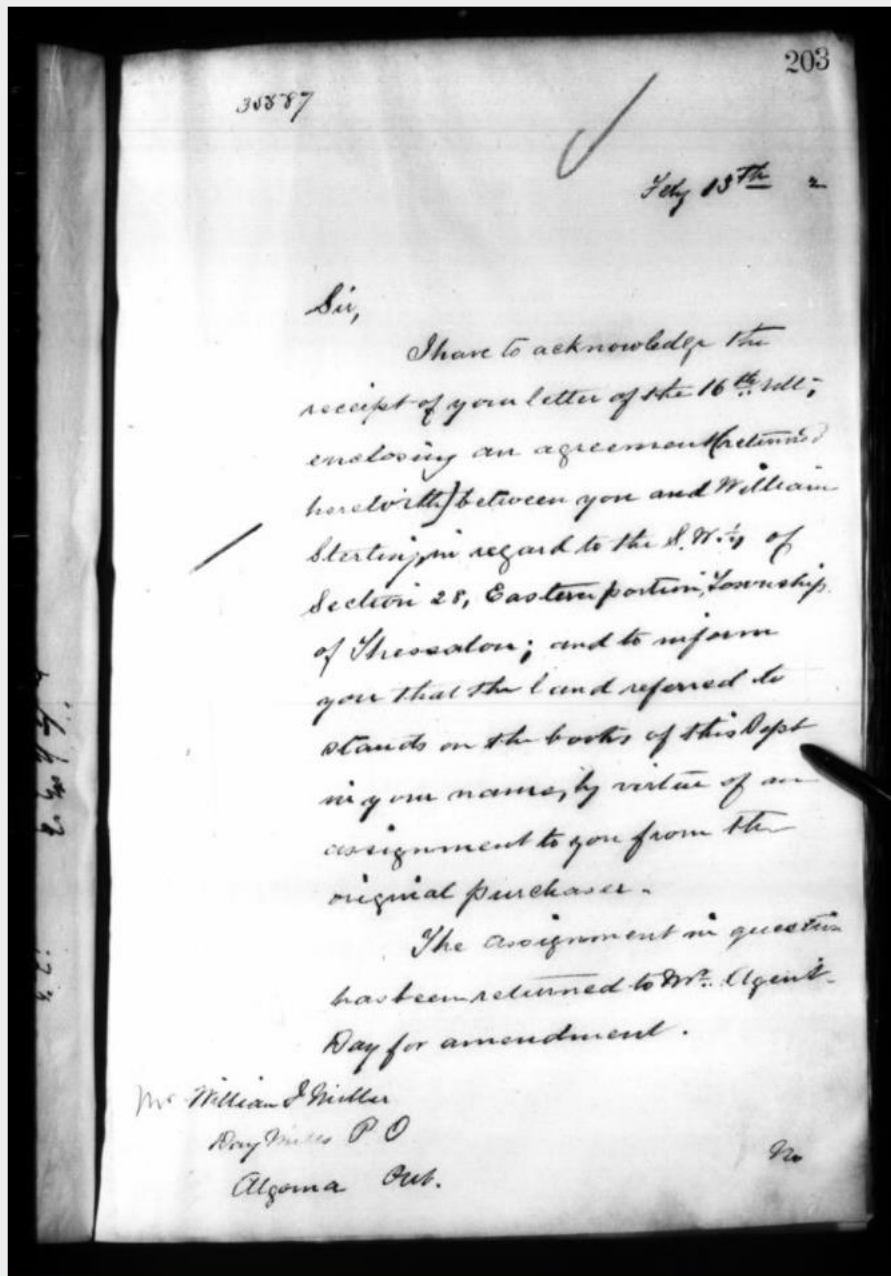 203
35887
Feby 13th 2
Sir,
I have to acknowledge the
receipt of your letter of the 16th ult;
enclosing an agreement (returned
herewith) between you and William
in regard to the S.W. ¼ of
Section 28, Eastern portion, Township
of Thessalon; and to inform
you that the land referred to
stands on the books of this Dept
in your name, by virtue of an
assignment to you from the
original purchaser.
The assignment in question
has been returned to Mr. Agent
Day for amendment.
Mr William J Miller
Day Mills P O
Algoma Ont.
No